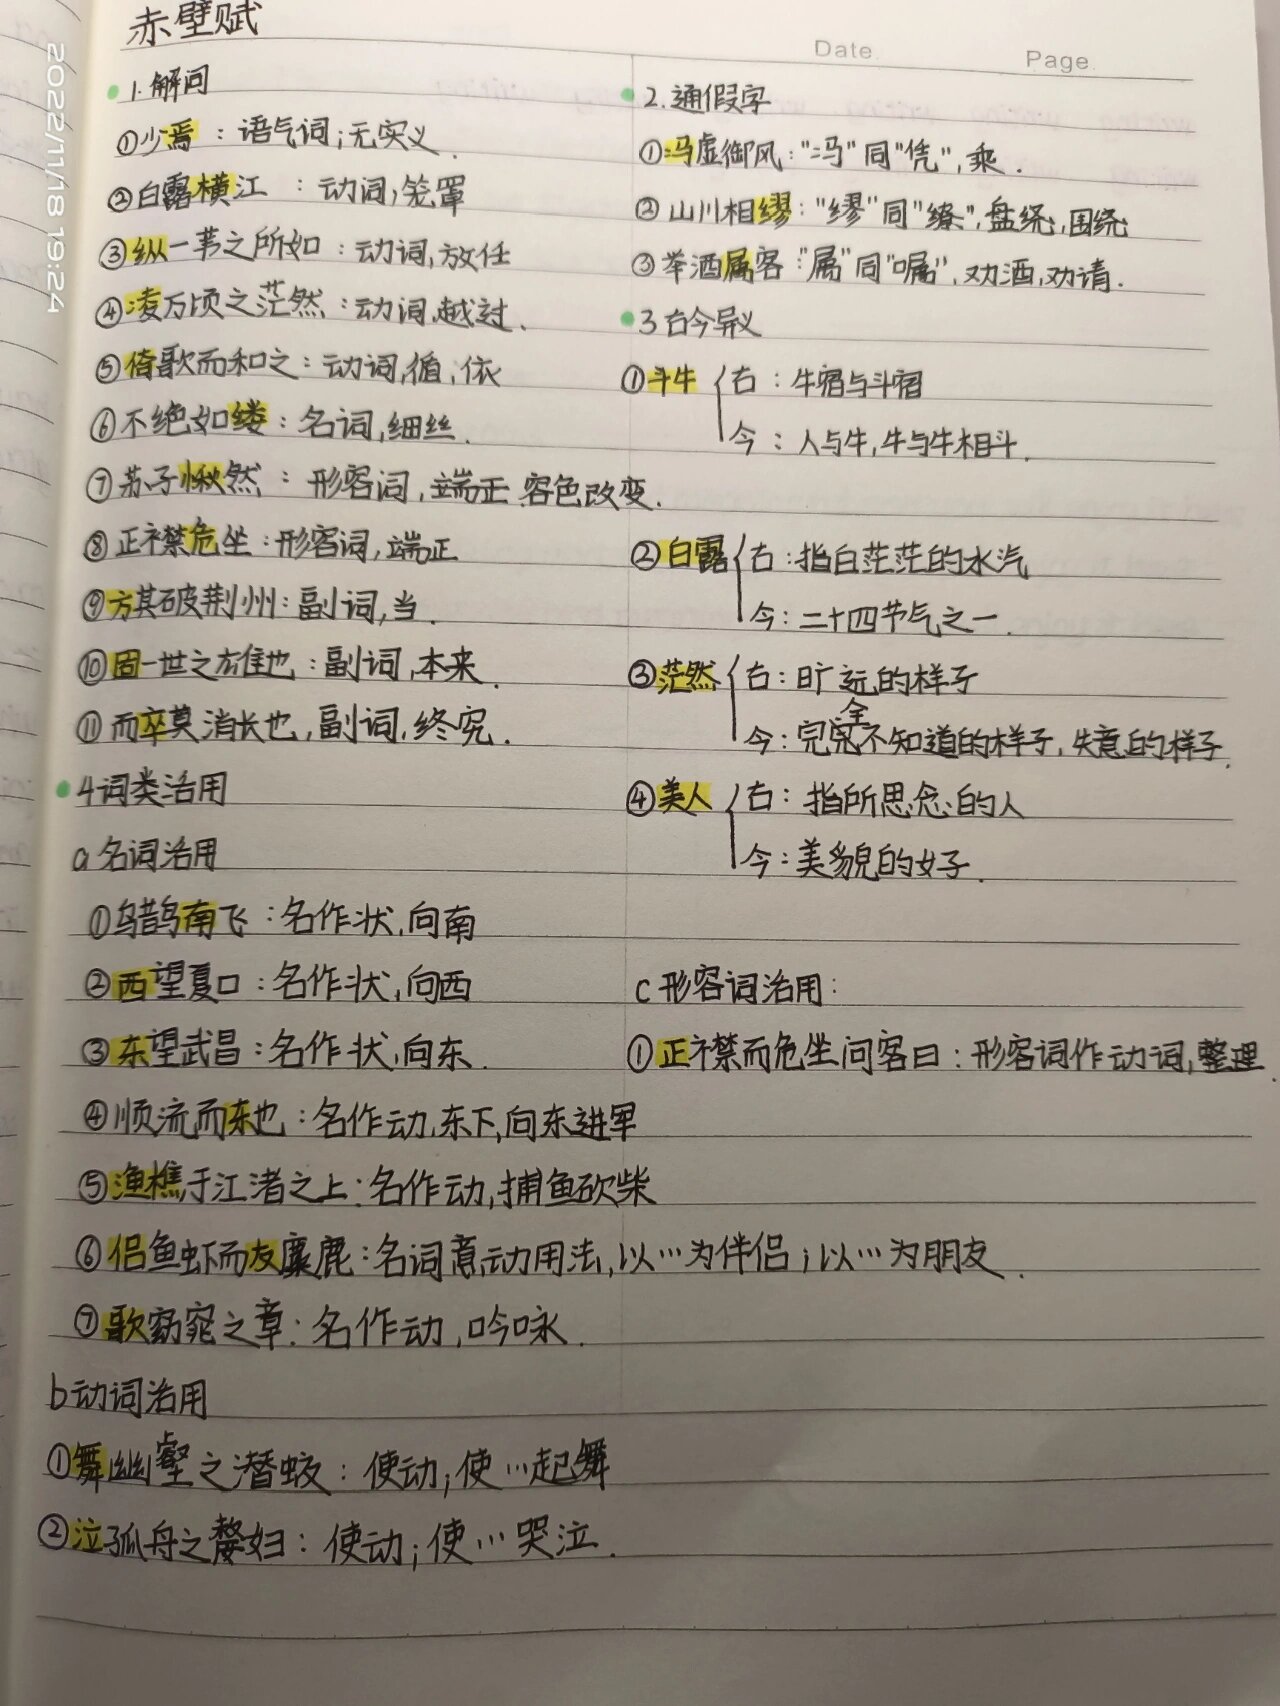 赤壁赋
Date.
Page.
2022/11/18 19:24
1.解词
①少焉：语气词；无实义.
②白露横江：动词，笼罩
③纵一苇之所如：动词，放任
④凌万顷之茫然：动词，越过.
⑤倚歌而和之：动词，循，依
⑥不绝如缕：名词，细丝.
⑦苏子愀然：形容词，端正.容色改变.
⑧正襟危坐：形容词，端正
⑨方其破荆州：副词，当.
⑩固一世之雄也：副词，本来.
⑪而卒莫消长也，副词，终究.
2.通假字
①冯虚御风："冯"同"凭"，乘.
②山川相缪："缪"同"缭"，盘绕，围绕
③举酒属客："属"同"嘱"，劝酒，劝请.
3古今异义
①斗牛 古：牛宿与斗宿
今：人与牛，牛与牛相斗.
②白露 古：指白茫茫的水汽
今：二十四节气之一.
③茫然 古：旷远的样子
今：完全不知道的样子，失意的样子.
④美人 古：指所思念的人
今：美貌的女子.
4词类活用
a名词活用
①乌鹊南飞：名作状，向南
②西望夏口：名作状，向西
③东望武昌：名作状，向东.
④顺流而东也：名作动，东下，向东进军
⑤渔樵于江渚之上：名作动，捕鱼砍柴
⑥侣鱼虾而友麋鹿：名词意动用法，以…为伴侣；以…为朋友.
⑦歌窈窕之章：名作动，吟咏.
b动词活用
①舞幽壑之潜蛟：使动；使…起舞
②泣孤舟之嫠妇：使动；使…哭泣.
c形容词活用：
①正襟而危坐问客曰：形容词作动词，整理.